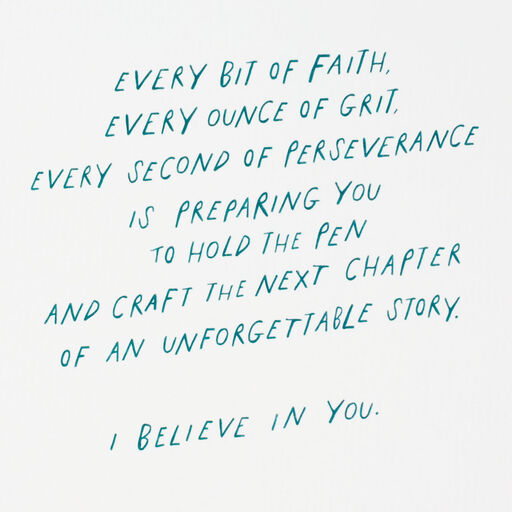 EVERY BIT OF FAITH,
EVERY OUNCE OF GRIT,
EVERY SECOND OF PERSEVERANCE
IS PREPARING YOU
TO HOLD THE PEN
AND CRAFT THE NEXT CHAPTER
OF AN UNFORGETTABLE STORY.
I BELIEVE IN YOU.